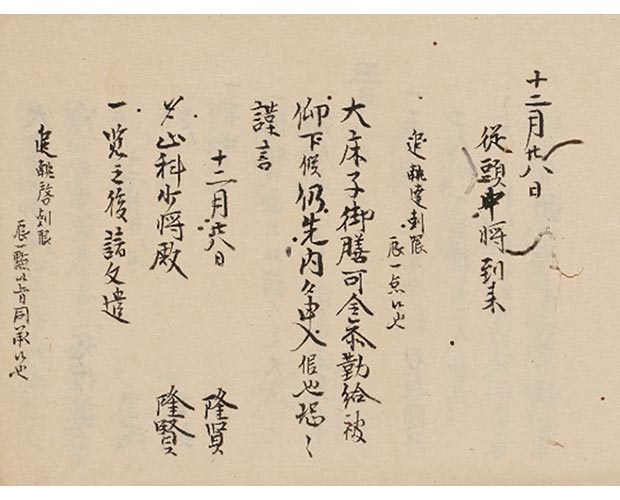 十二月廿八日
従頭中将到来
追䠷達刻限
辰一点候也
大床子御膳可令参勤給被
仰下候仍先内々申入候也恐々
謹言
十二月廿八日 隆賢
山科少将殿 隆賢
一覧之後諾文遣
追啓刻限
辰一點候旨同承候也